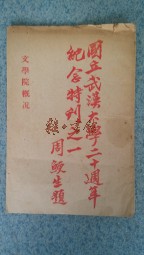 國立武漢大學二十週年
紀念特刊之一
周鯁生題
文學院概況